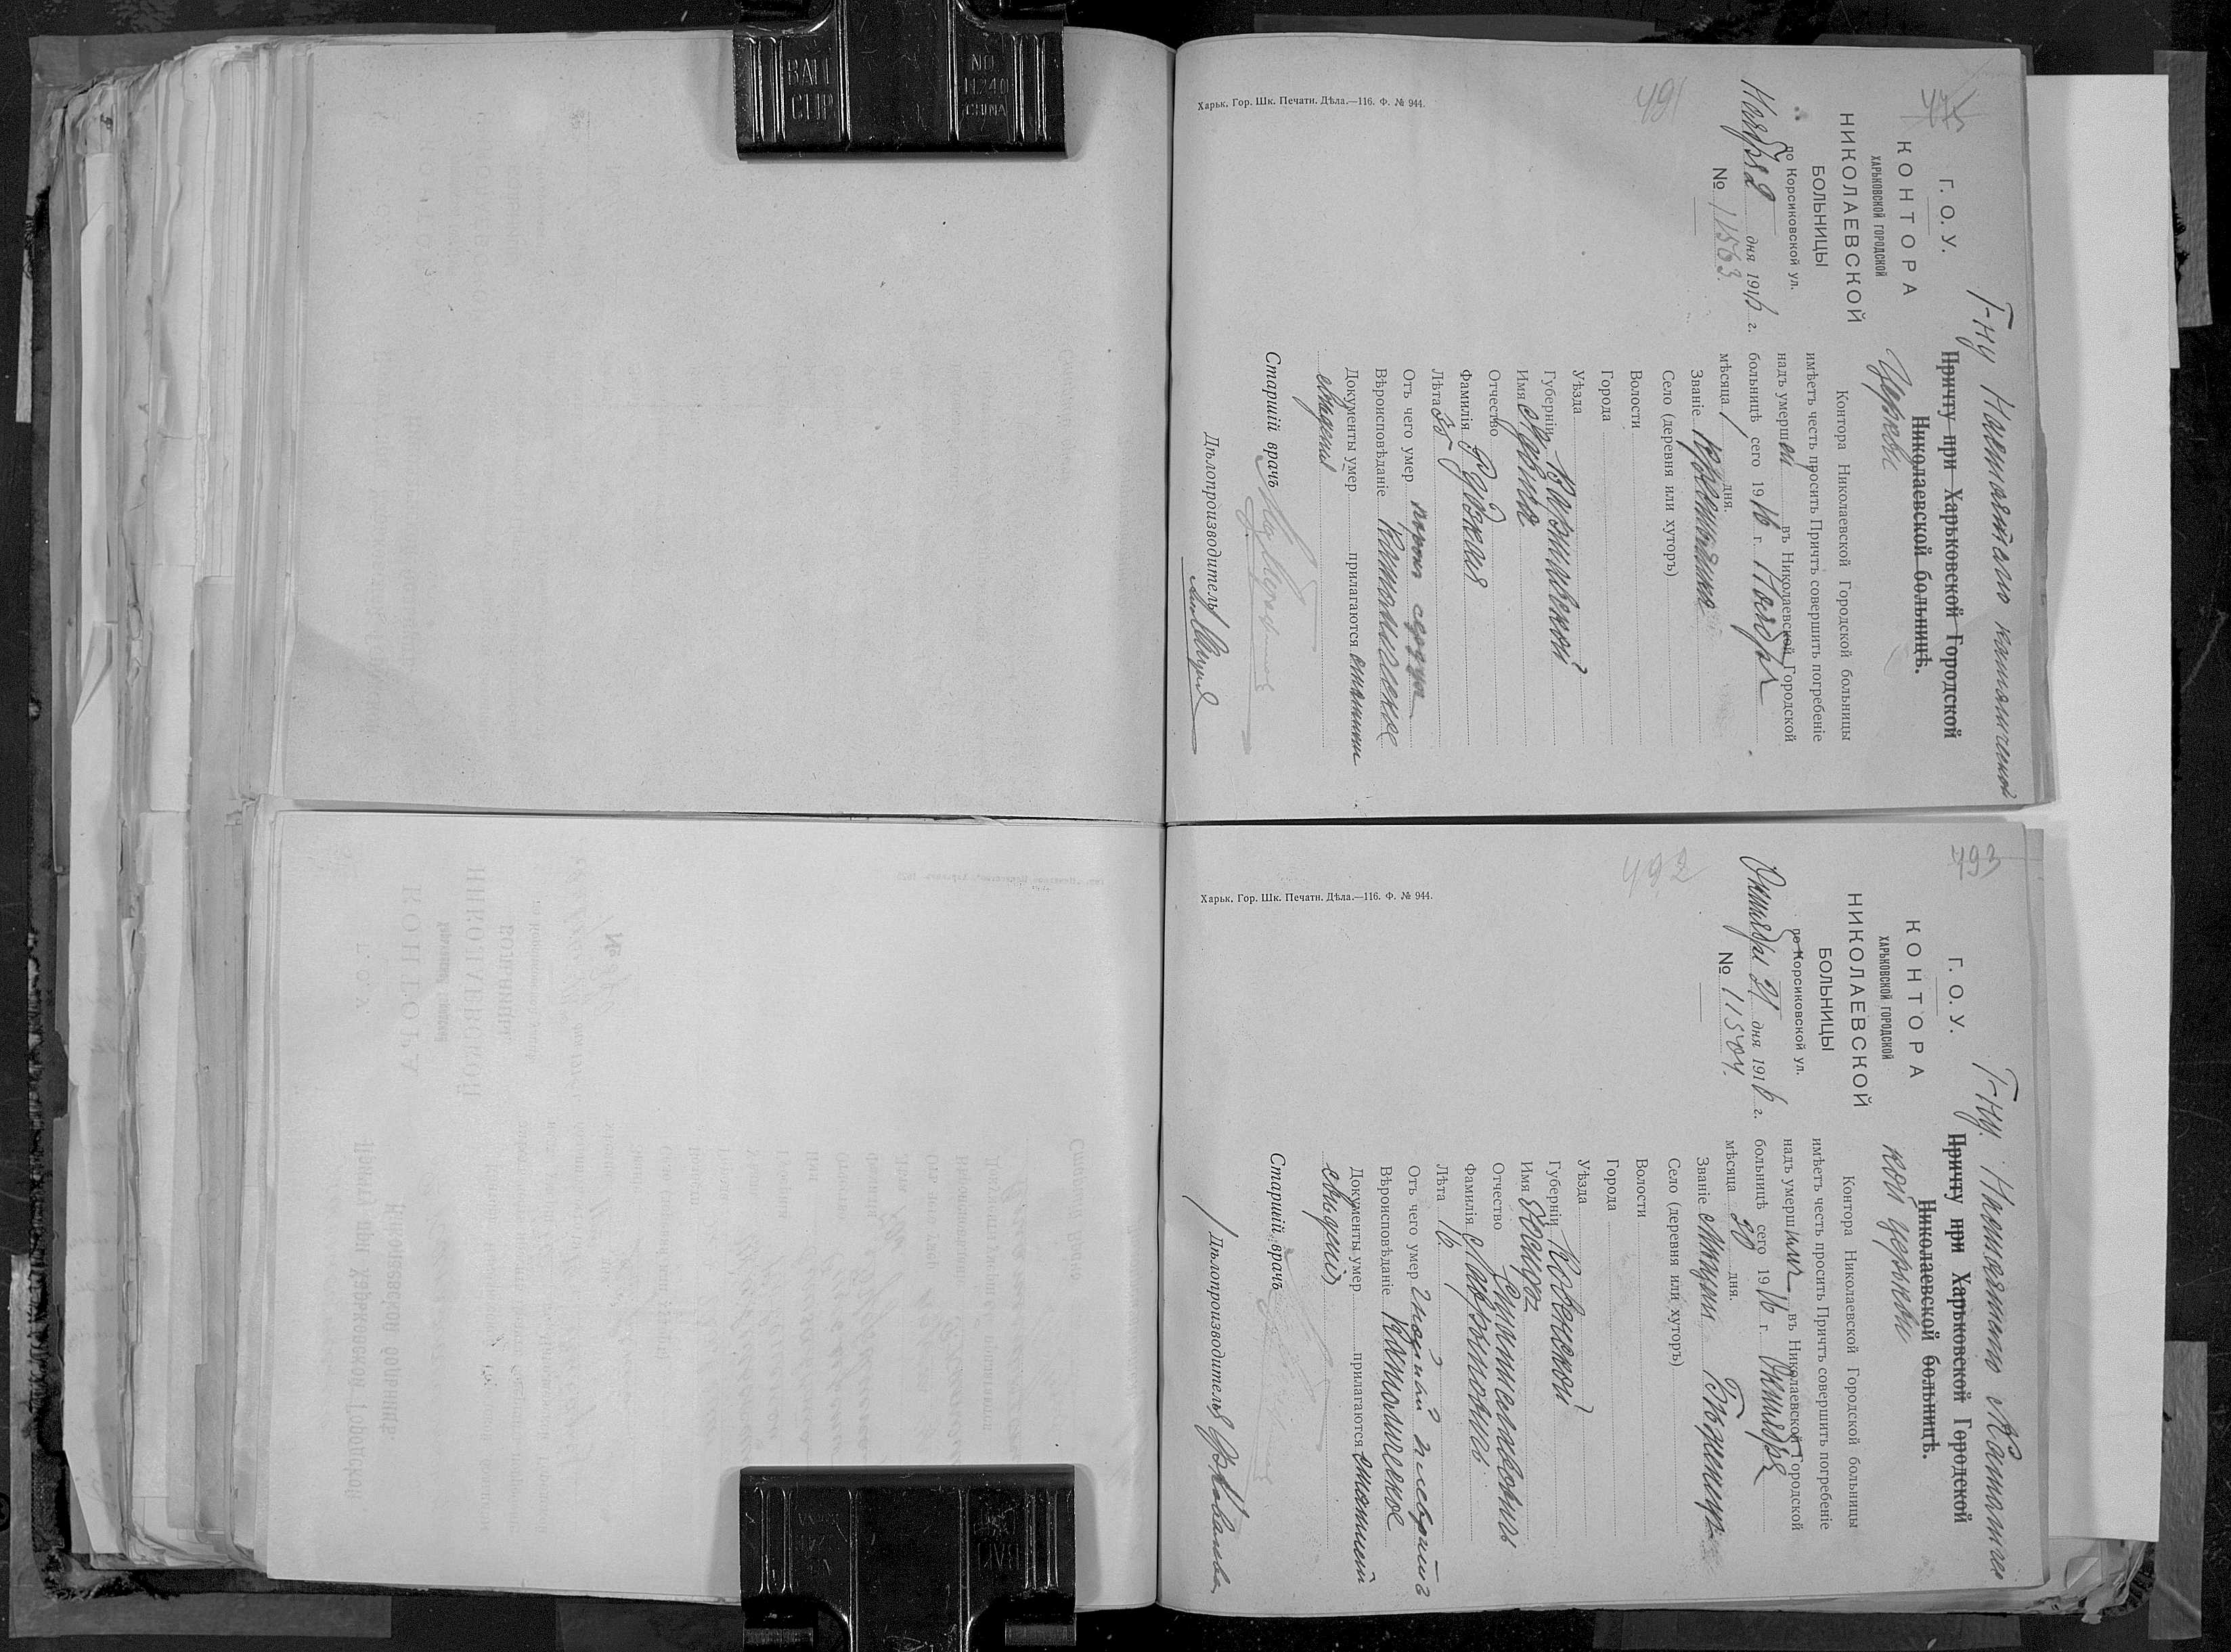 475
Г. О. У.
КОНТОРА
ХАРЬКОВСКОЙ ГОРОДСКОЙ
НИКОЛАЕВСКОЙ
БОЛЬНИЦЫ
по Корсиковской ул.
Ноября 2 дня 1916 г.
№ 11563.
491
Г-ну Настоятелю католической
Причту при Харьковской Городской
Николаевской больницѣ.
Церкви
Контора Николаевской Городской больницы
имѣетъ честь просить Причтъ совершить погребеніе
надъ умершей въ Николаевской Городской
больницѣ сего 1916 г. Ноября
мѣсяца 1 дня.
Званіе Крестьянка
Село (деревня или хуторъ)
Волости
Города
Уѣзда
Губерніи Варшавской
Имя Марья
Отчество
Фамилія
Лѣта 35
Отъ чего умер порок сердца
Вѣроисповѣданіе Католическое
Документы умер прилагаются
свѣденія
Старшій врачъ
Дѣлопроизводитель
Харьк. Гор. Шк. Печатн. Дѣла.—116. Ф. № 944.
493
Г. О. У.
КОНТОРА
ХАРЬКОВСКОЙ ГОРОДСКОЙ
НИКОЛАЕВСКОЙ
БОЛЬНИЦЫ
по Корсиковской ул.
Октября 31 дня 1916 г.
№ 11504.
492
Г-ну. Настоятелю Католичес
Причту при Харьковской Городской
Николаевской больницѣ.
кой церкви
Контора Николаевской Городской больницы
имѣетъ честь просить Причтъ совершить погребеніе
надъ умершим въ Николаевской Городской
больницѣ сего 1916 г. Октября
мѣсяца 30 дня.
Званіе Бѣженецъ
Село (деревня или хуторъ)
Волости
Города
Уѣзда
Губерніи Ковенской
Имя
Отчество
Фамилія
Лѣта 16.
Отъ чего умер Гнойный плевритъ
Вѣроисповѣданіе Католическое
Документы умер прилагаются
свѣденій
Старшій врачъ
Дѣлопроизводитель
Харьк. Гор. Шк. Печатн. Дѣла.—116. Ф. № 944.
BALL
CLIP
NO
CHINA